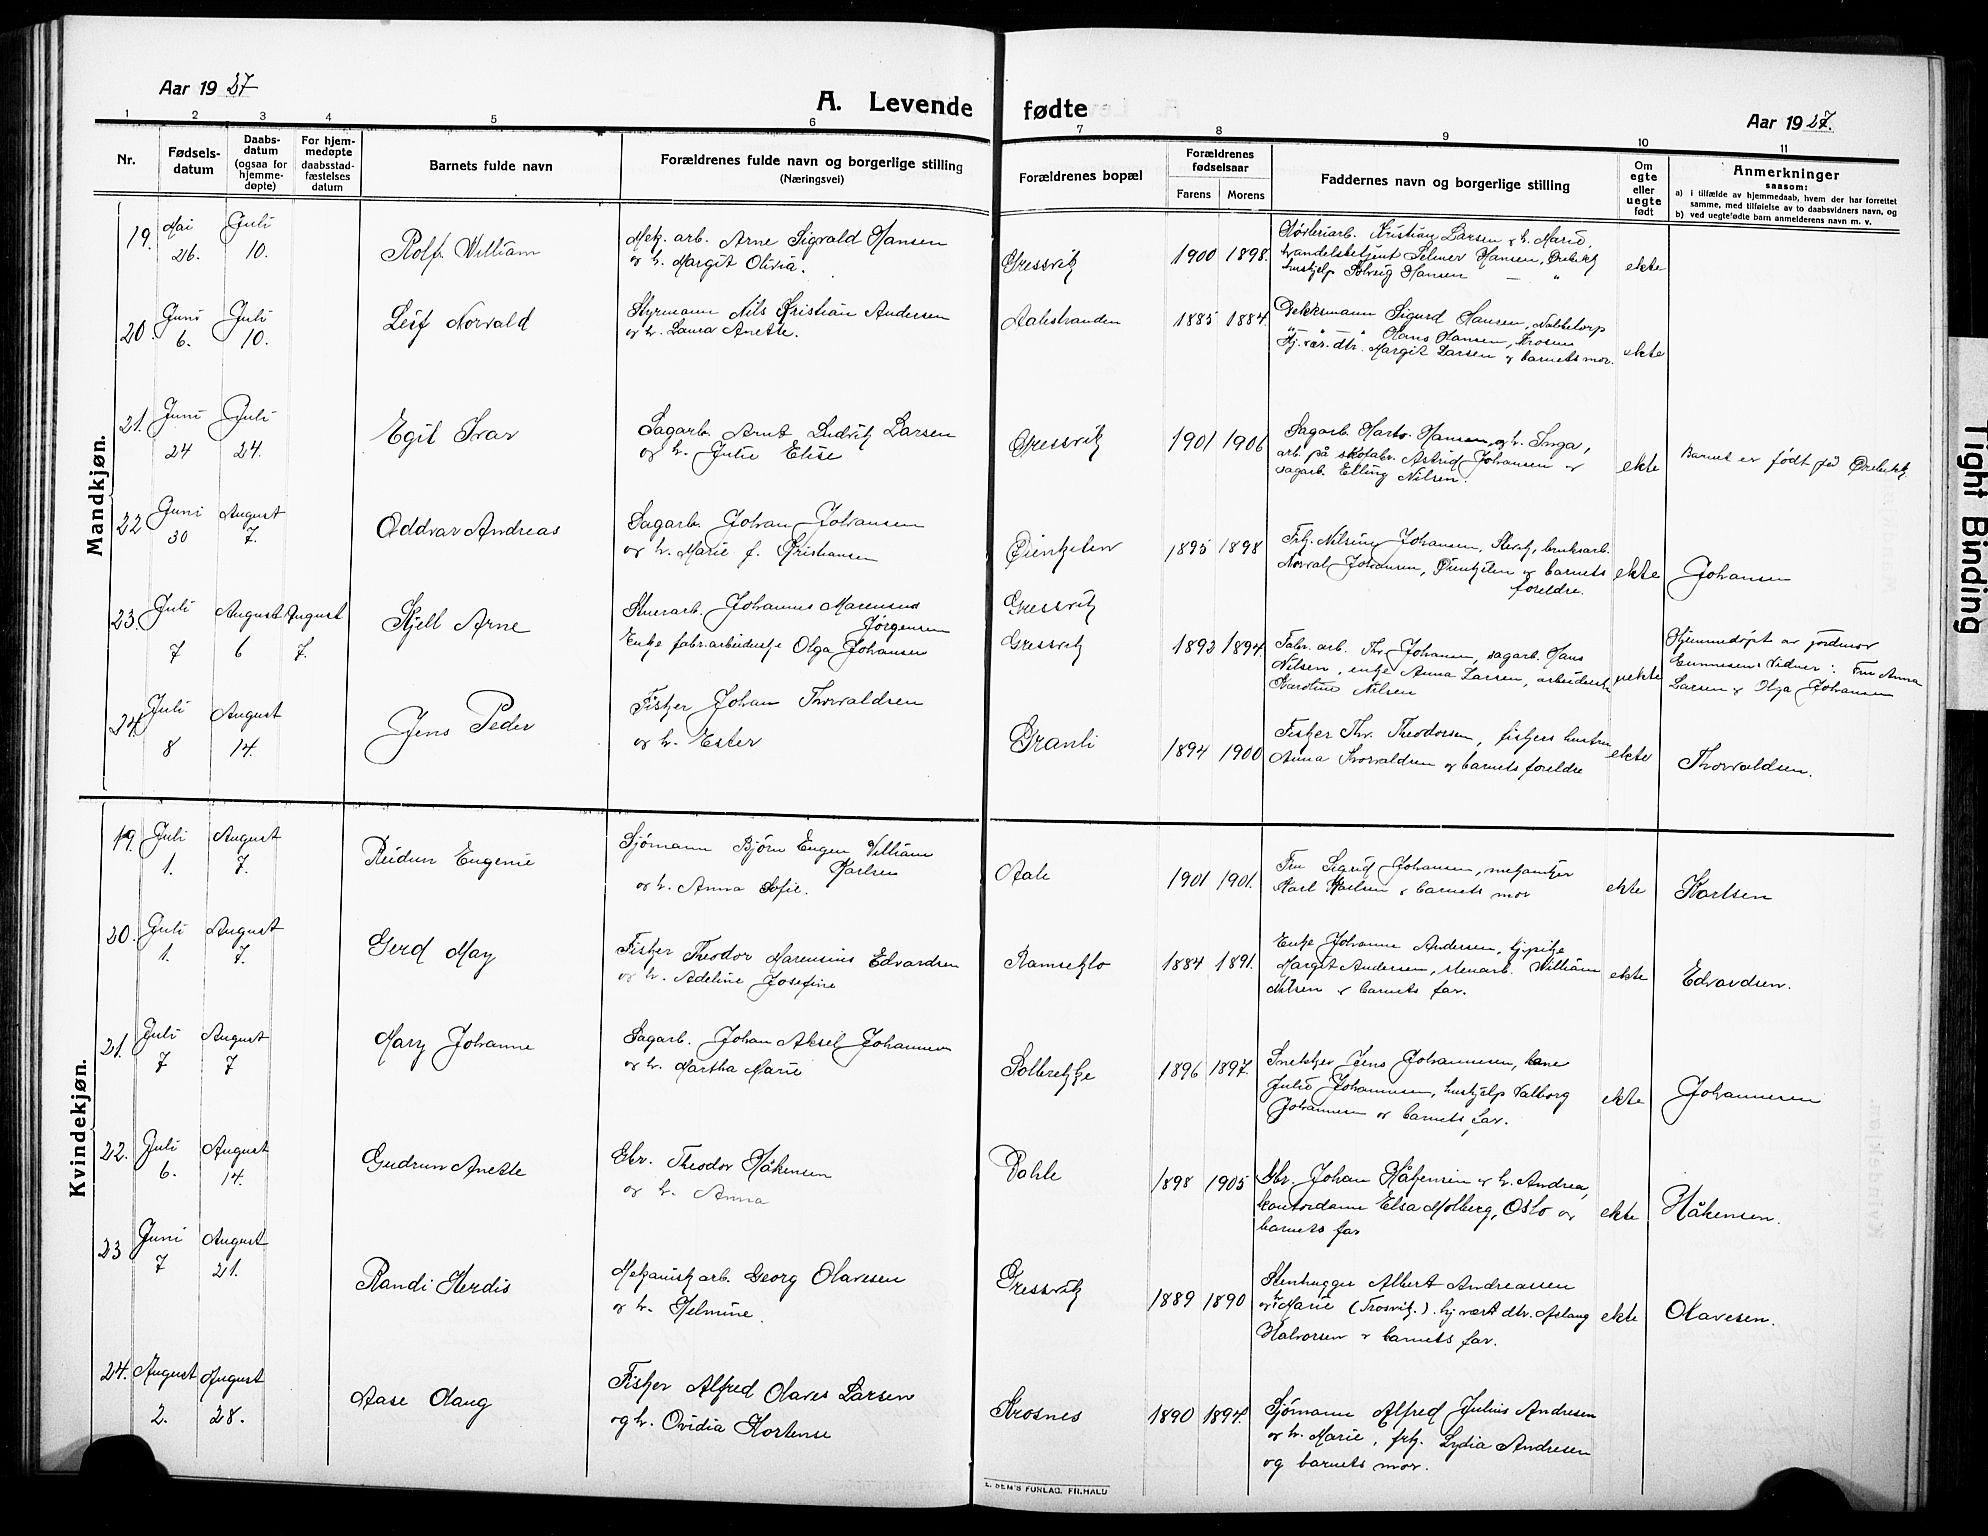 Aar 1927
A. Levende fødte
Aar 1927.
1 2 3 4 5 6 7 8 9 10 11
Nr.
Fødsels-
datum
Daabs-
datum
(ogsaa for
hjemme-
døpte)
For hjem-
medøpte
daabsstad-
fæstelses
datum
Barnets fulde navn
Forældrenes fulde navn og borgerlige stilling
(Næringsvei)
Forældrenes bopæl
Forældrenes
fødselsaar
Farens Morens
Faddernes navn og borgerlige stilling
Om
egte
eller
uegte
født
Anmerkninger
saasom:
a) i tilfælde av hjemmedaab, hvem der har forrettet
samme, med tilføielse av to daabsvidners navn, og
b) ved uegtefødte barn anmelderens navn m. v.
Mandkjøn.
19. Mai 26. Juli 10. Rolf William
Mek. arb. Arne Sigvald Hansen
og h. Margit Olivia.
Gressvik 1900 1898.
Kristian Larsen & h. Marie,
handelsbetjent Selmer Hansen, Ørebekk
hushjelp Solveig Hansen — "
ekte
20. Juni 6. Juli 10. Leif Norvald
Styrmann Nils Kristian Andersen
og h. Laura Anette.
Aalestranden 1885 1884.
Dekksmann Sigurd Hansen, Nabbetorp
" — " — " Hans Hansen, Krosnes
Hj. vær. dtr. Margit Larsen & barnets mor.
ekte
21. Juni 24 Juli 24. Egil Ivar
Sagarb. Arnt Ludvik Larsen
og h. Julie Elise
Gressvik 1901 1906
Sagarb. Harto. Hansen og h. Inga,
arb. på skofabr. Astrid Johansen &
sagarb. Elling Nilsen.
ekte
Barnet er født på Ørebekk.
22 Juni 30 August 7. Oddvar Andreas
Sagarb. Johan Johansen
og h. Marie f. Kristiansen
Øienkilen 1895 1898
Frk. Nilsine Johansen, bruksarb.
Norval Johansen, Øienkilen & barnets
foreldre.
ekte
Johansen
23. Juli 7 August 6 August 7. Kjell Arne
Stuerarb. Johannes Marensius
Jørgensen
Enke fabr.arbeiderske Olga Johansen
Gressvik
Gressvik 1892 1894.
Fabr. arb. Th. Johansen, sagarb. Hans
Nilsen, enke Anna Larsen, arbeiderske
Karoline Nilsen
uekte
Hjemmedøpt av jordmor
Gunnesen. Vidner: Fru Anna
Larsen & Olga Johansen
24. Juli 8 August 14. Jens Peder
Fisker Johan Thorvaldsen
og h. Ester
Granli 1894 1900
Fisker Thr. Theodorsen, fiskers hustru
Anna Thorvaldsen og barnets foreldre
ekte
Thorvaldsen.
Kvindekjøn.
19. Juli 1. August 7. Reidun Eugenie
Sjømann Bjørn Eugen William
Karlsen
og h. Anna Sofie.
Aale 1901 1901.
Fru Sigrid Johansen, mekaniker
Karl Karlsen & barnets mor
ekte
Karlsen
20. Juli 1. August 7. Gerd May
Fisker Theodor Marensius Edvardsen
og h. Adeline Josefine
Ramseklo 1884 1891.
Enke Johanne Andersen, hjpike
Margit Andersen, stenarb. William
Nilsen & barnets far.
ekte
Edvardsen.
21. Juli 7 August 7 Mary Johanne
Sagarb. Johan Aksel Johannesen
og h. Martha Marie
Solbrekke 1896 1897.
Snekker Jens Johannesen, kone
Julie Johannesen, hushjelp Valborg
Johannesen og barnets far.
ekte
Johannesen
22. Juli 6. August 14. Gudrun Anette
Gbr. Theodor Håkensen
og h. Anna
Dahle 1898 1905
Gbr. Johan Håkensen & h. Andrea,
kontordame Elsa Molberg, Oslo og
barnets far
ekte
Håkensen.
23 Juni 7 August 21. Randi Herdis
Mekanisk arb. Georg Olavesen
og h. Helmine.
Gressvik 1889 1890
Stenhugger Albert Andreassen
og h. Marie (Trosvik.) hj vært dtr. Aslaug
Halvorsen & barnets far.
ekte
Olavesen.
24. August 2. August 28. Aase Olaug
Fisker Alfred Olaves Larsen
og h. Ovidia Hortense
Krosnes 1890 1894.
Sjømann Alfred Julius Andresen
og h. Marie, frk. Lydia Andresen
og barnets mor.
E. SEM'S FORLAG. FR.HALD
Tight Binding